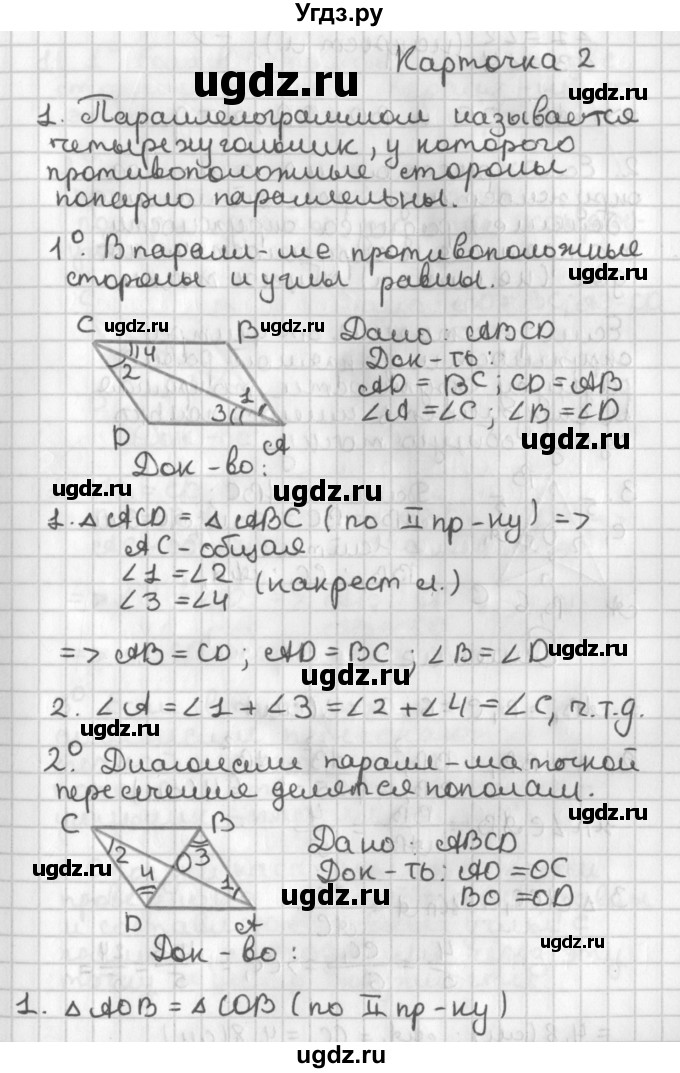 Угдз.ру
Карточка 2
ugdz.ru
1. Параллелограммом называется
ugdz.ru
четырехугольник, у которого
противоположные стороны
ugdz.ru
попарно параллельны.
1°. В паралл-ме противоположные
стороны и углы равны.
ugdz.ru
C ugdz.ru B ugdz.ru Дано: ABCD
4 2 1 3 D A
Док-ть:
AD = BC; CD = AB
∠A = ∠C; ∠B = ∠D
ugdz.ru
Док-во:
ugdz.ru ugdz.ru
1. △ACD = △ABC (по II пр-ку) =>
AC - общая
∠1 = ∠2 (накрест л.)
∠3 = ∠4
ugdz.ru
=> AB = CD; AD = BC; ∠B = ∠D
2. ∠A = ∠1 + ∠3 = ∠2 + ∠4 = ∠C, ч.т.д.
ugdz.ru
2°. Диагонали паралл-ма точкой
пересечения делятся пополам.
ugdz.ru
C B Дано: ABCD
2 O 3 4 1 D A
ugdz.ru
Док-ть: AO = OC
ugdz.ru
BO = OD
ugdz.ru
Док-во:
1. △AOB = △COB (по II пр-ку)
ugdz.ru